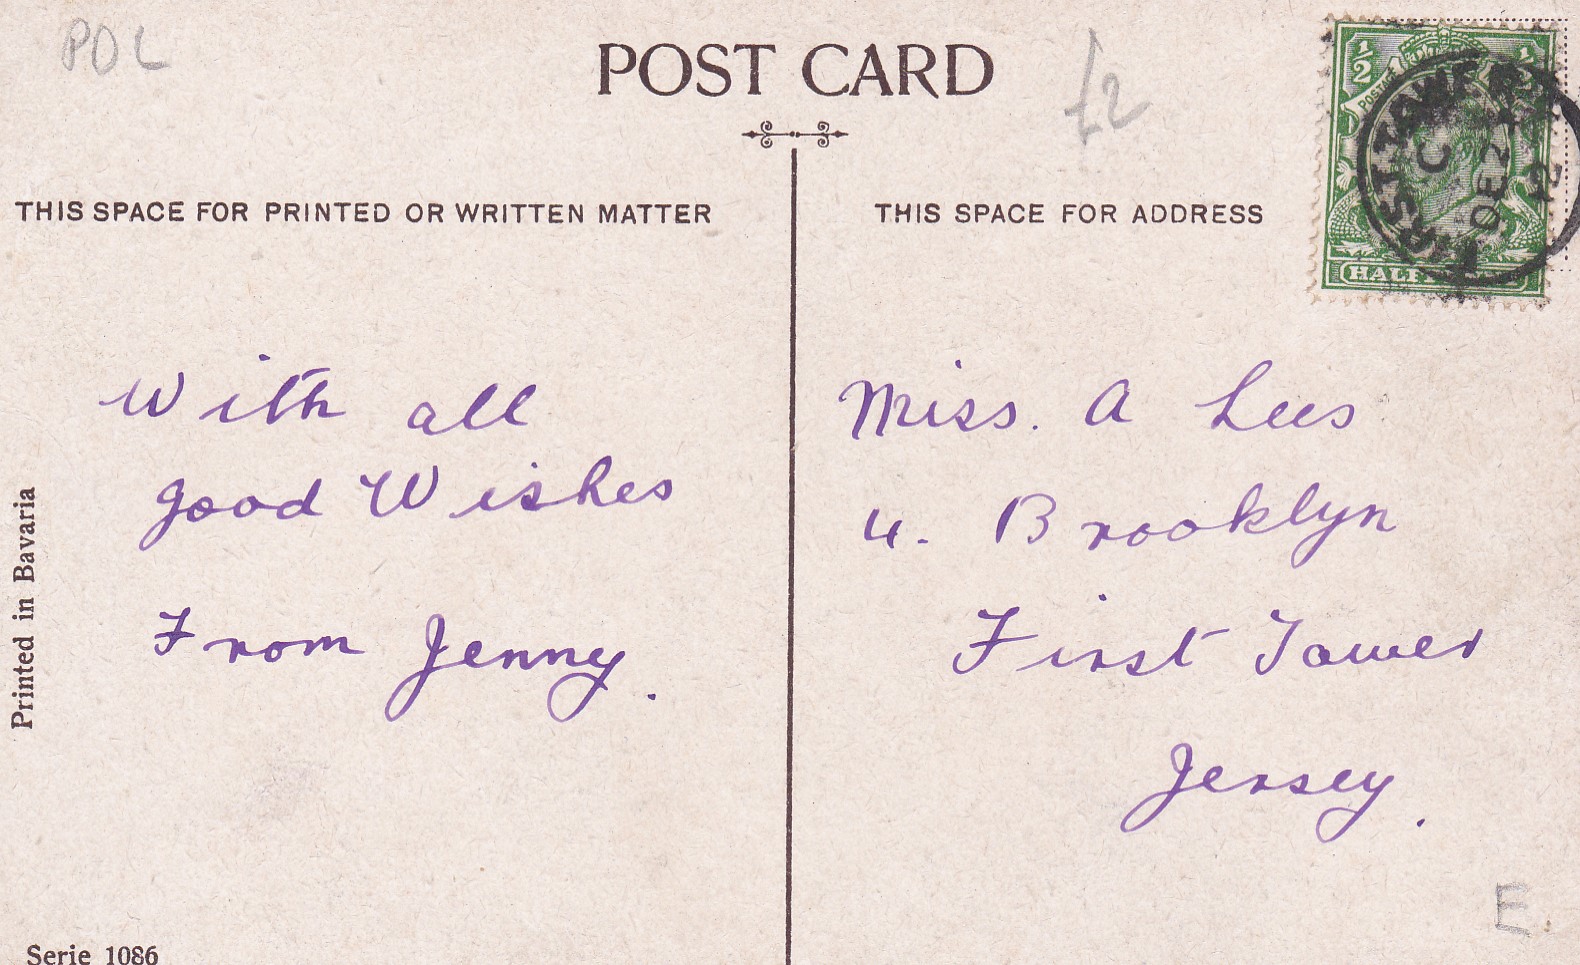 POL
POST CARD
£2
THIS SPACE FOR PRINTED OR WRITTEN MATTER
THIS SPACE FOR ADDRESS
1/2
1/2
POSTAGE
FIRST TOWER
C
DE 2
12
HALF
With all
good Wishes
From Jenny.
Miss. A Lees
4. Brooklyn
First Tower
Jersey.
Printed in Bavaria
Serie 1086
E